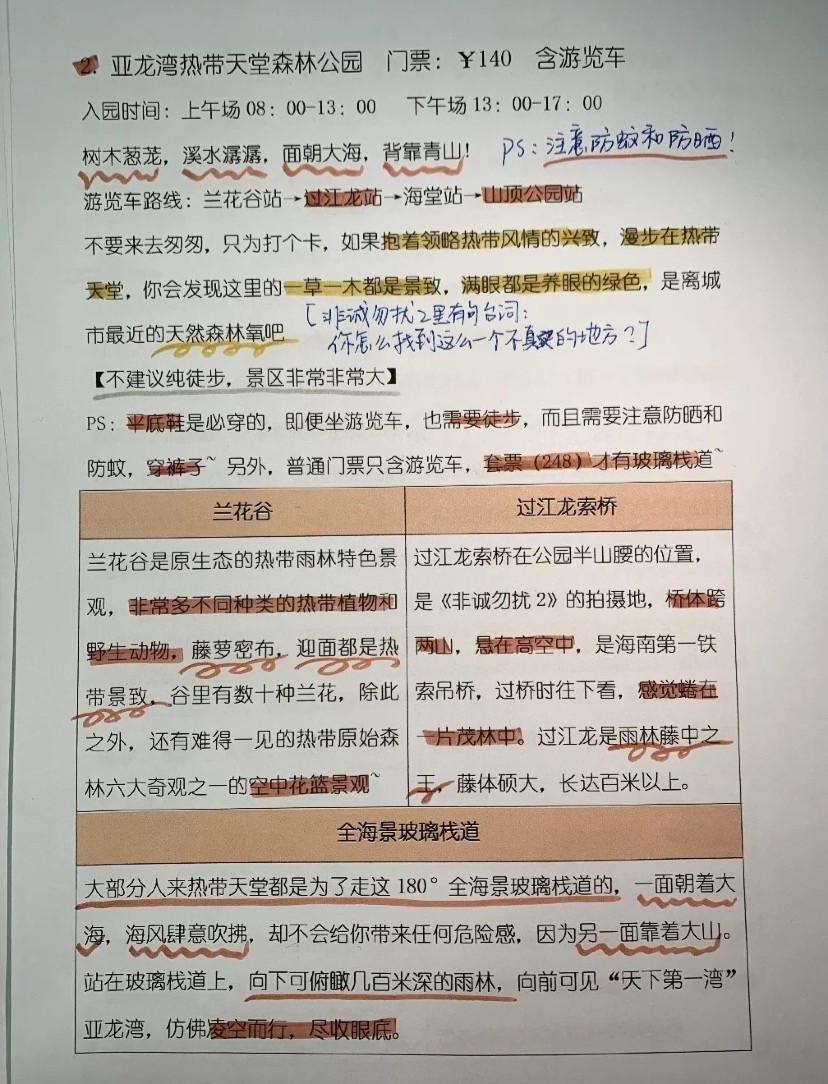 2. 亚龙湾热带天堂森林公园 门票：￥140 含游览车
入园时间：上午场 08：00-13：00 下午场 13：00-17：00
树木葱茏，溪水潺潺，面朝大海，背靠青山！ PS：注意防蚊和防晒！
游览车路线：兰花谷站→过江龙站→海堂站→山顶公园站
不要来去匆匆，只为打个卡，如果抱着领略热带风情的兴致，漫步在热带
天堂，你会发现这里的一草一木都是景致，满眼都是养眼的绿色，是离城
市最近的天然森林氧吧
[非诚勿扰2里有句台词：
你怎么找到这么一个不真实的地方？]
【不建议纯徒步，景区非常非常大】
PS：平底鞋是必穿的，即便坐游览车，也需要徒步，而且需要注意防晒和
防蚊，穿裤子~ 另外，普通门票只含游览车，套票（248）才有玻璃栈道~
兰花谷
兰花谷是原生态的热带雨林特色景
观，非常多不同种类的热带植物和
野生动物，藤萝密布，迎面都是热
带景致，谷里有数十种兰花，除此
之外，还有难得一见的热带原始森
林六大奇观之一的空中花篮景观~
过江龙索桥
过江龙索桥在公园半山腰的位置，
是《非诚勿扰 2》的拍摄地，桥体跨
两山，悬在高空中，是海南第一铁
索吊桥，过桥时往下看，感觉蜷在
一片茂林中。过江龙是雨林藤中之
王，藤体硕大，长达百米以上。
全海景玻璃栈道
大部分人来热带天堂都是为了走这 180°全海景玻璃栈道的，一面朝着大
海，海风肆意吹拂，却不会给你带来任何危险感，因为另一面靠着大山。
站在玻璃栈道上，向下可俯瞰几百米深的雨林，向前可见“天下第一湾”
亚龙湾，仿佛凌空而行，尽收眼底。